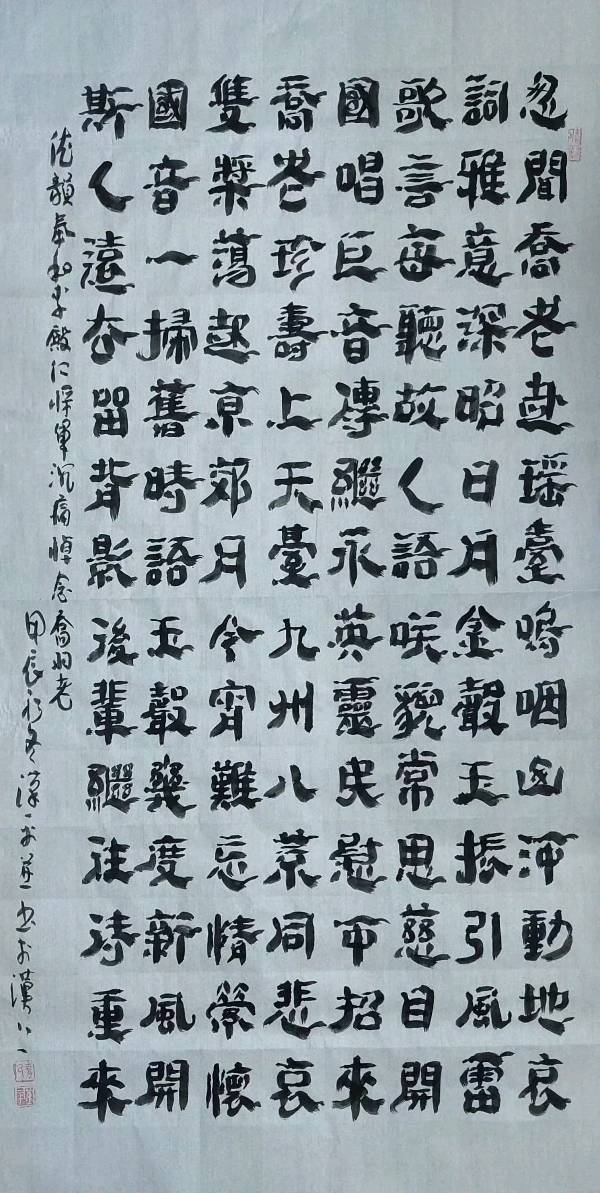 忽聞喬老赴瑶臺嗚咽山河動地哀
詞雅意深昭日月金聲玉振引風雷
歌言每聽故人語咲貌常思慈目開
國唱巨音傳繼永英靈史慰帀招來
喬老珍壽上天臺九州八荒同悲哀
雙槳蕩起京郊月今宵難忘情縈懷
國音一掃舊時語玉聲幾度新風開
斯人遠去留背影後輩繼往待重來
依韻奉和李殿仁將軍沉痛悼念喬羽老
甲辰初冬漢一書